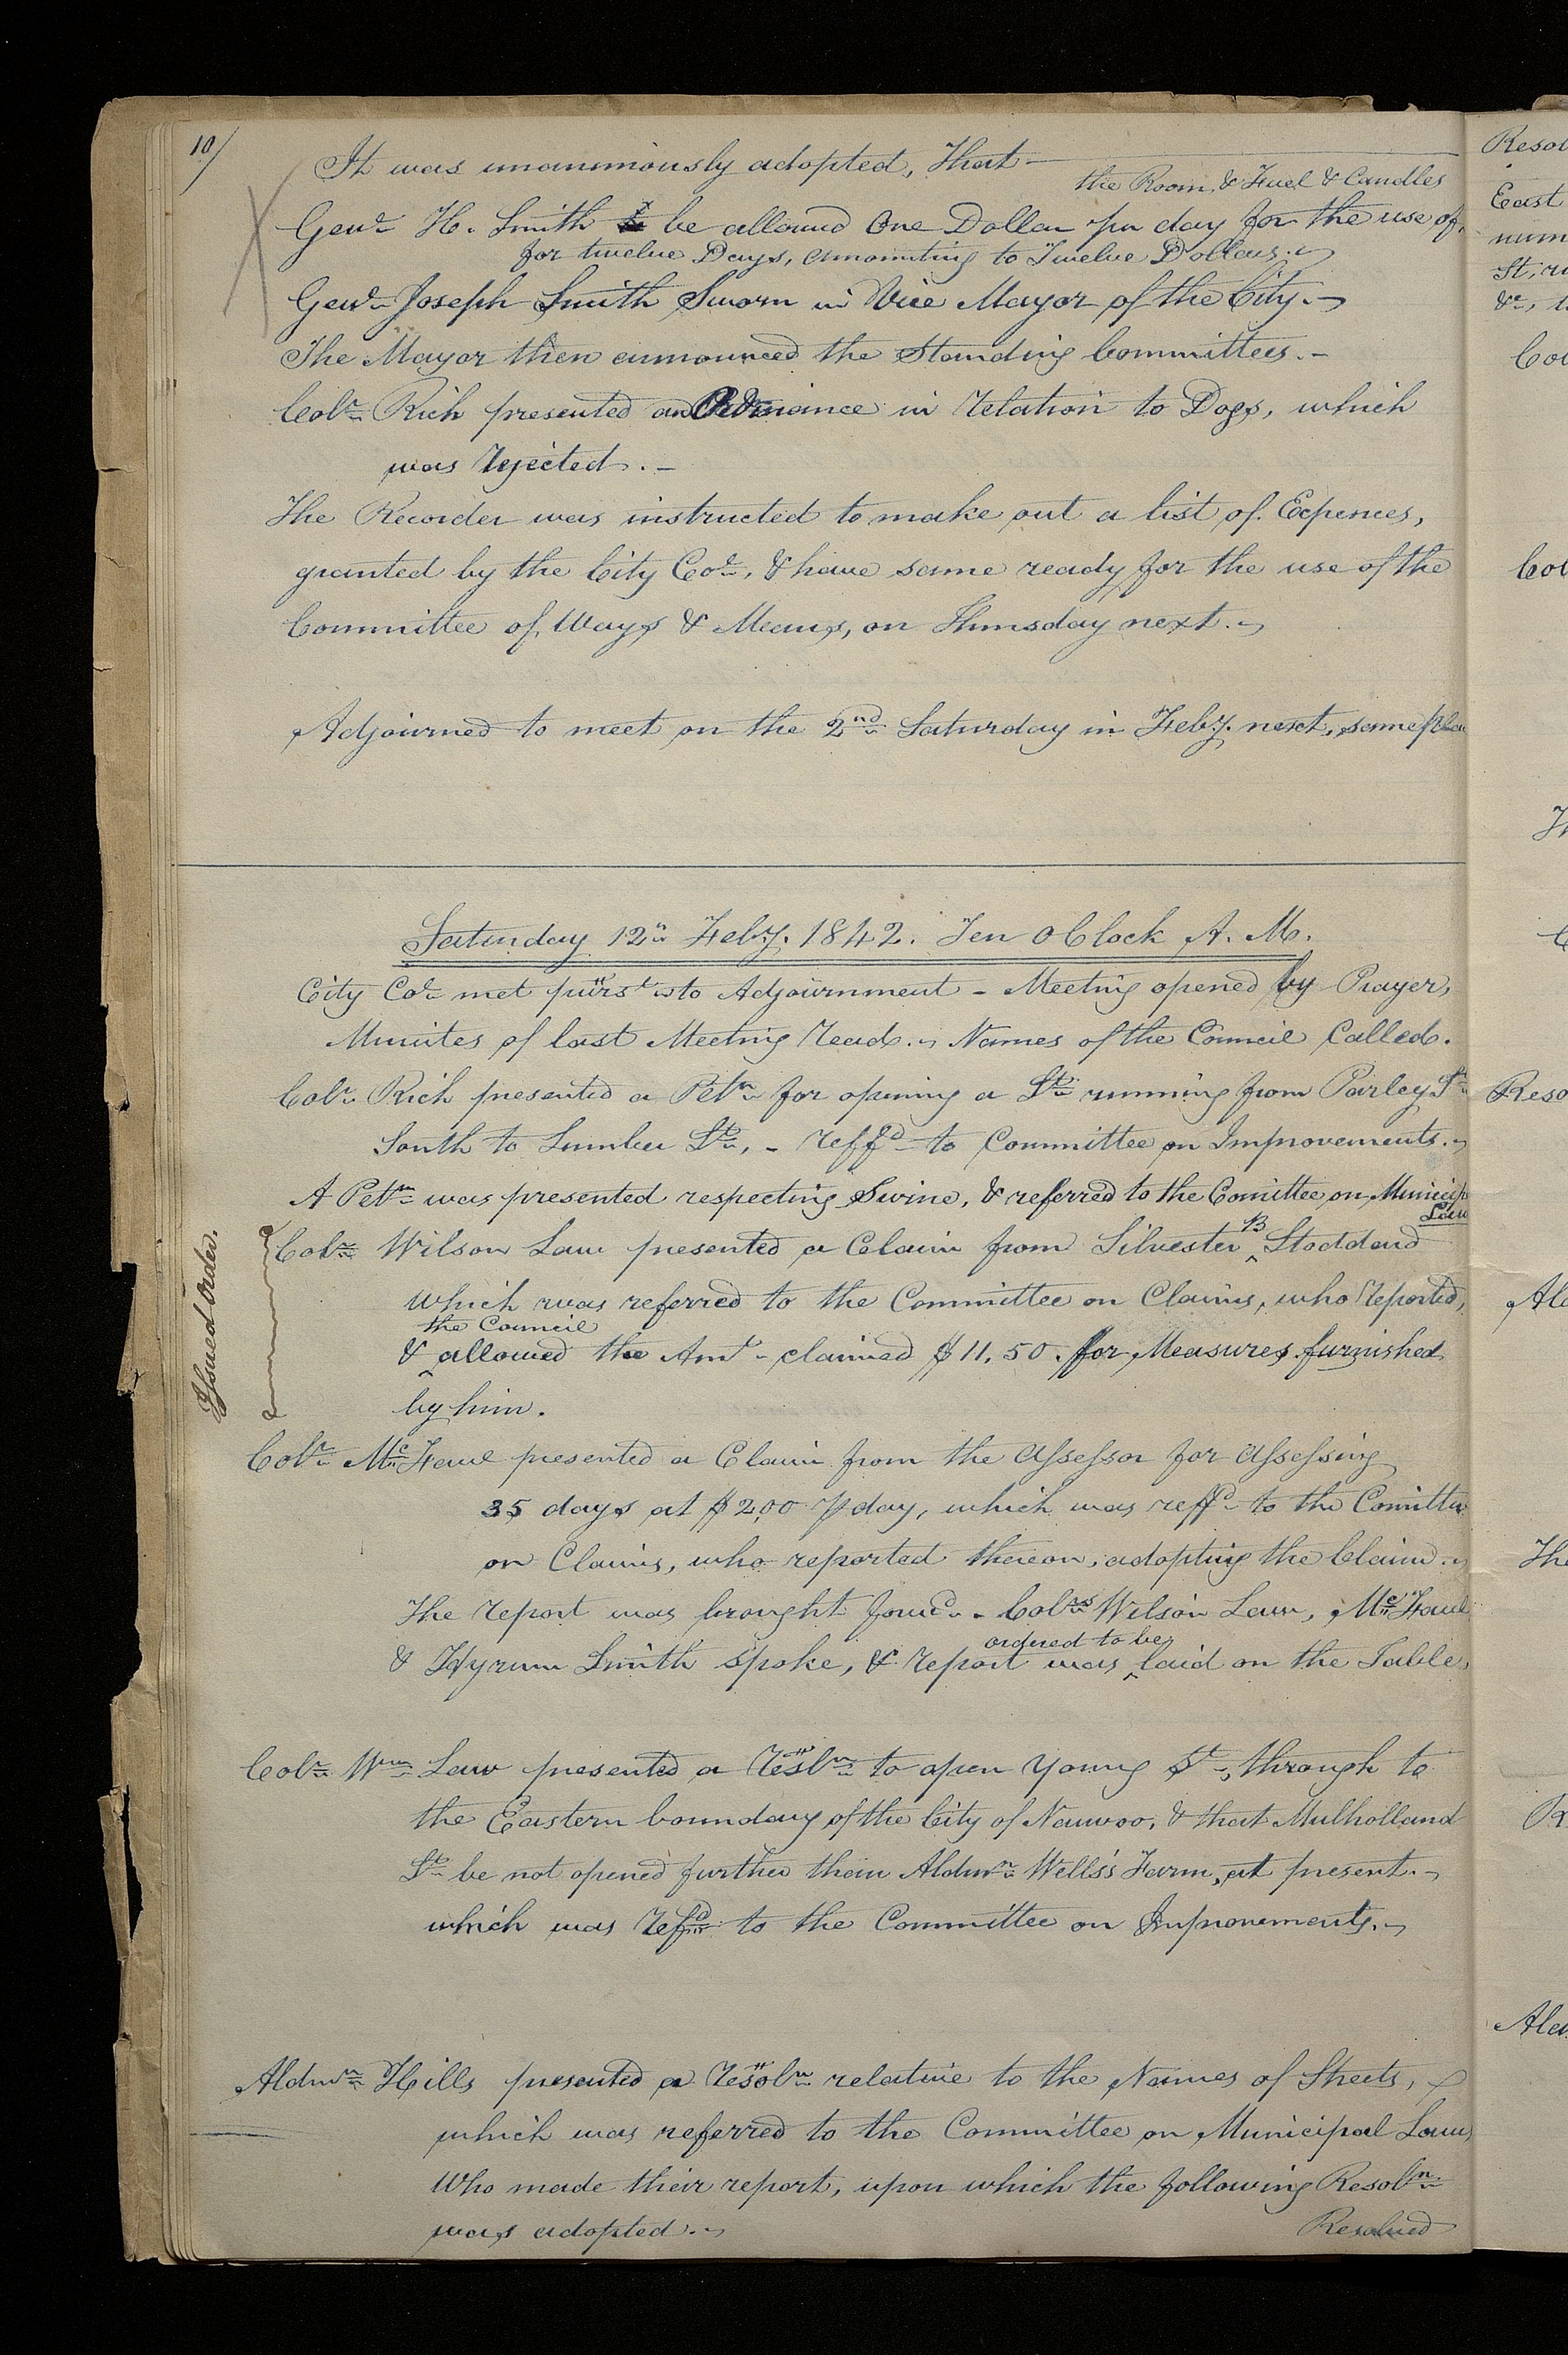 10/
It was unanimously adopted, That—
the Room, & Fuel & Candles
Genl. H. Smith be allowed One Dollar per day for the use of,
for twelve Days, amounting to Twelve Dollars.
Genl. Joseph Smith Sworn in Vice Mayor of the City.
The Mayor then announced the Standing Committees.—
Colr. Rich presented an Ordinance in relation to Dogs, which
was rejected.—
The Recorder was instructed to make out a list of Expences,
granted by the City Col., & have same ready for the use of the
Committee of Ways & Means, on Thursday next.
Adjourned to meet on the 2nd Saturday in Feby. next, same place
Saturday 12th Feby. 1842. Ten O Clock A. M.
City Col. met purst. to Adjournment – Meeting opened by Prayer,
Minutes of last Meeting read. Names of the Council Called.
Colr. Rich presented a Petn. for opening a St. running from Parley St.
South to Lumber St., – reffd. to Committee on Improvements.
A Petn. was presented respecting Swine, & referred to the Comittee on Municip
Law
Issued Order.
Colr. Wilson Law presented a Claim from Silvester B Stoddard
which was referred to the Committee on Claims, who reported,
the Council
& ^ allowed the Amt. claimed $11,50. for Measures furnished
by him.
Colr. McFaul presented a Claim from the Assessor for Assessing
35 days at $2,00 p day, which was reffd. to the Comittee
on Claims, who reported thereon, adopting the Claim.
The report was brought forwd. – Colrs. Wilson Law, McFaul
ordered to be
& Hyrum Smith spoke, & report was ^ laid on the Table,
Colr. Wm. Law presented a Resln. to open Young St., through to
the Eastern boundary of the City of Nauvoo, & that Mulholland
St. be not opened further than Aldmn. Wells's Farm, at present.
which was refd. to the Committee on Improvements.
Aldmn. Hills presented a Resoln. relative to the Names of Streets,
which was referred to the Committee on Municipal Laws,
Who made their report, upon which the following Resoln.
was adopted.
Resolved
Resol
East
num
St, ru
Col
Col
Reso
Ald
The
Ald